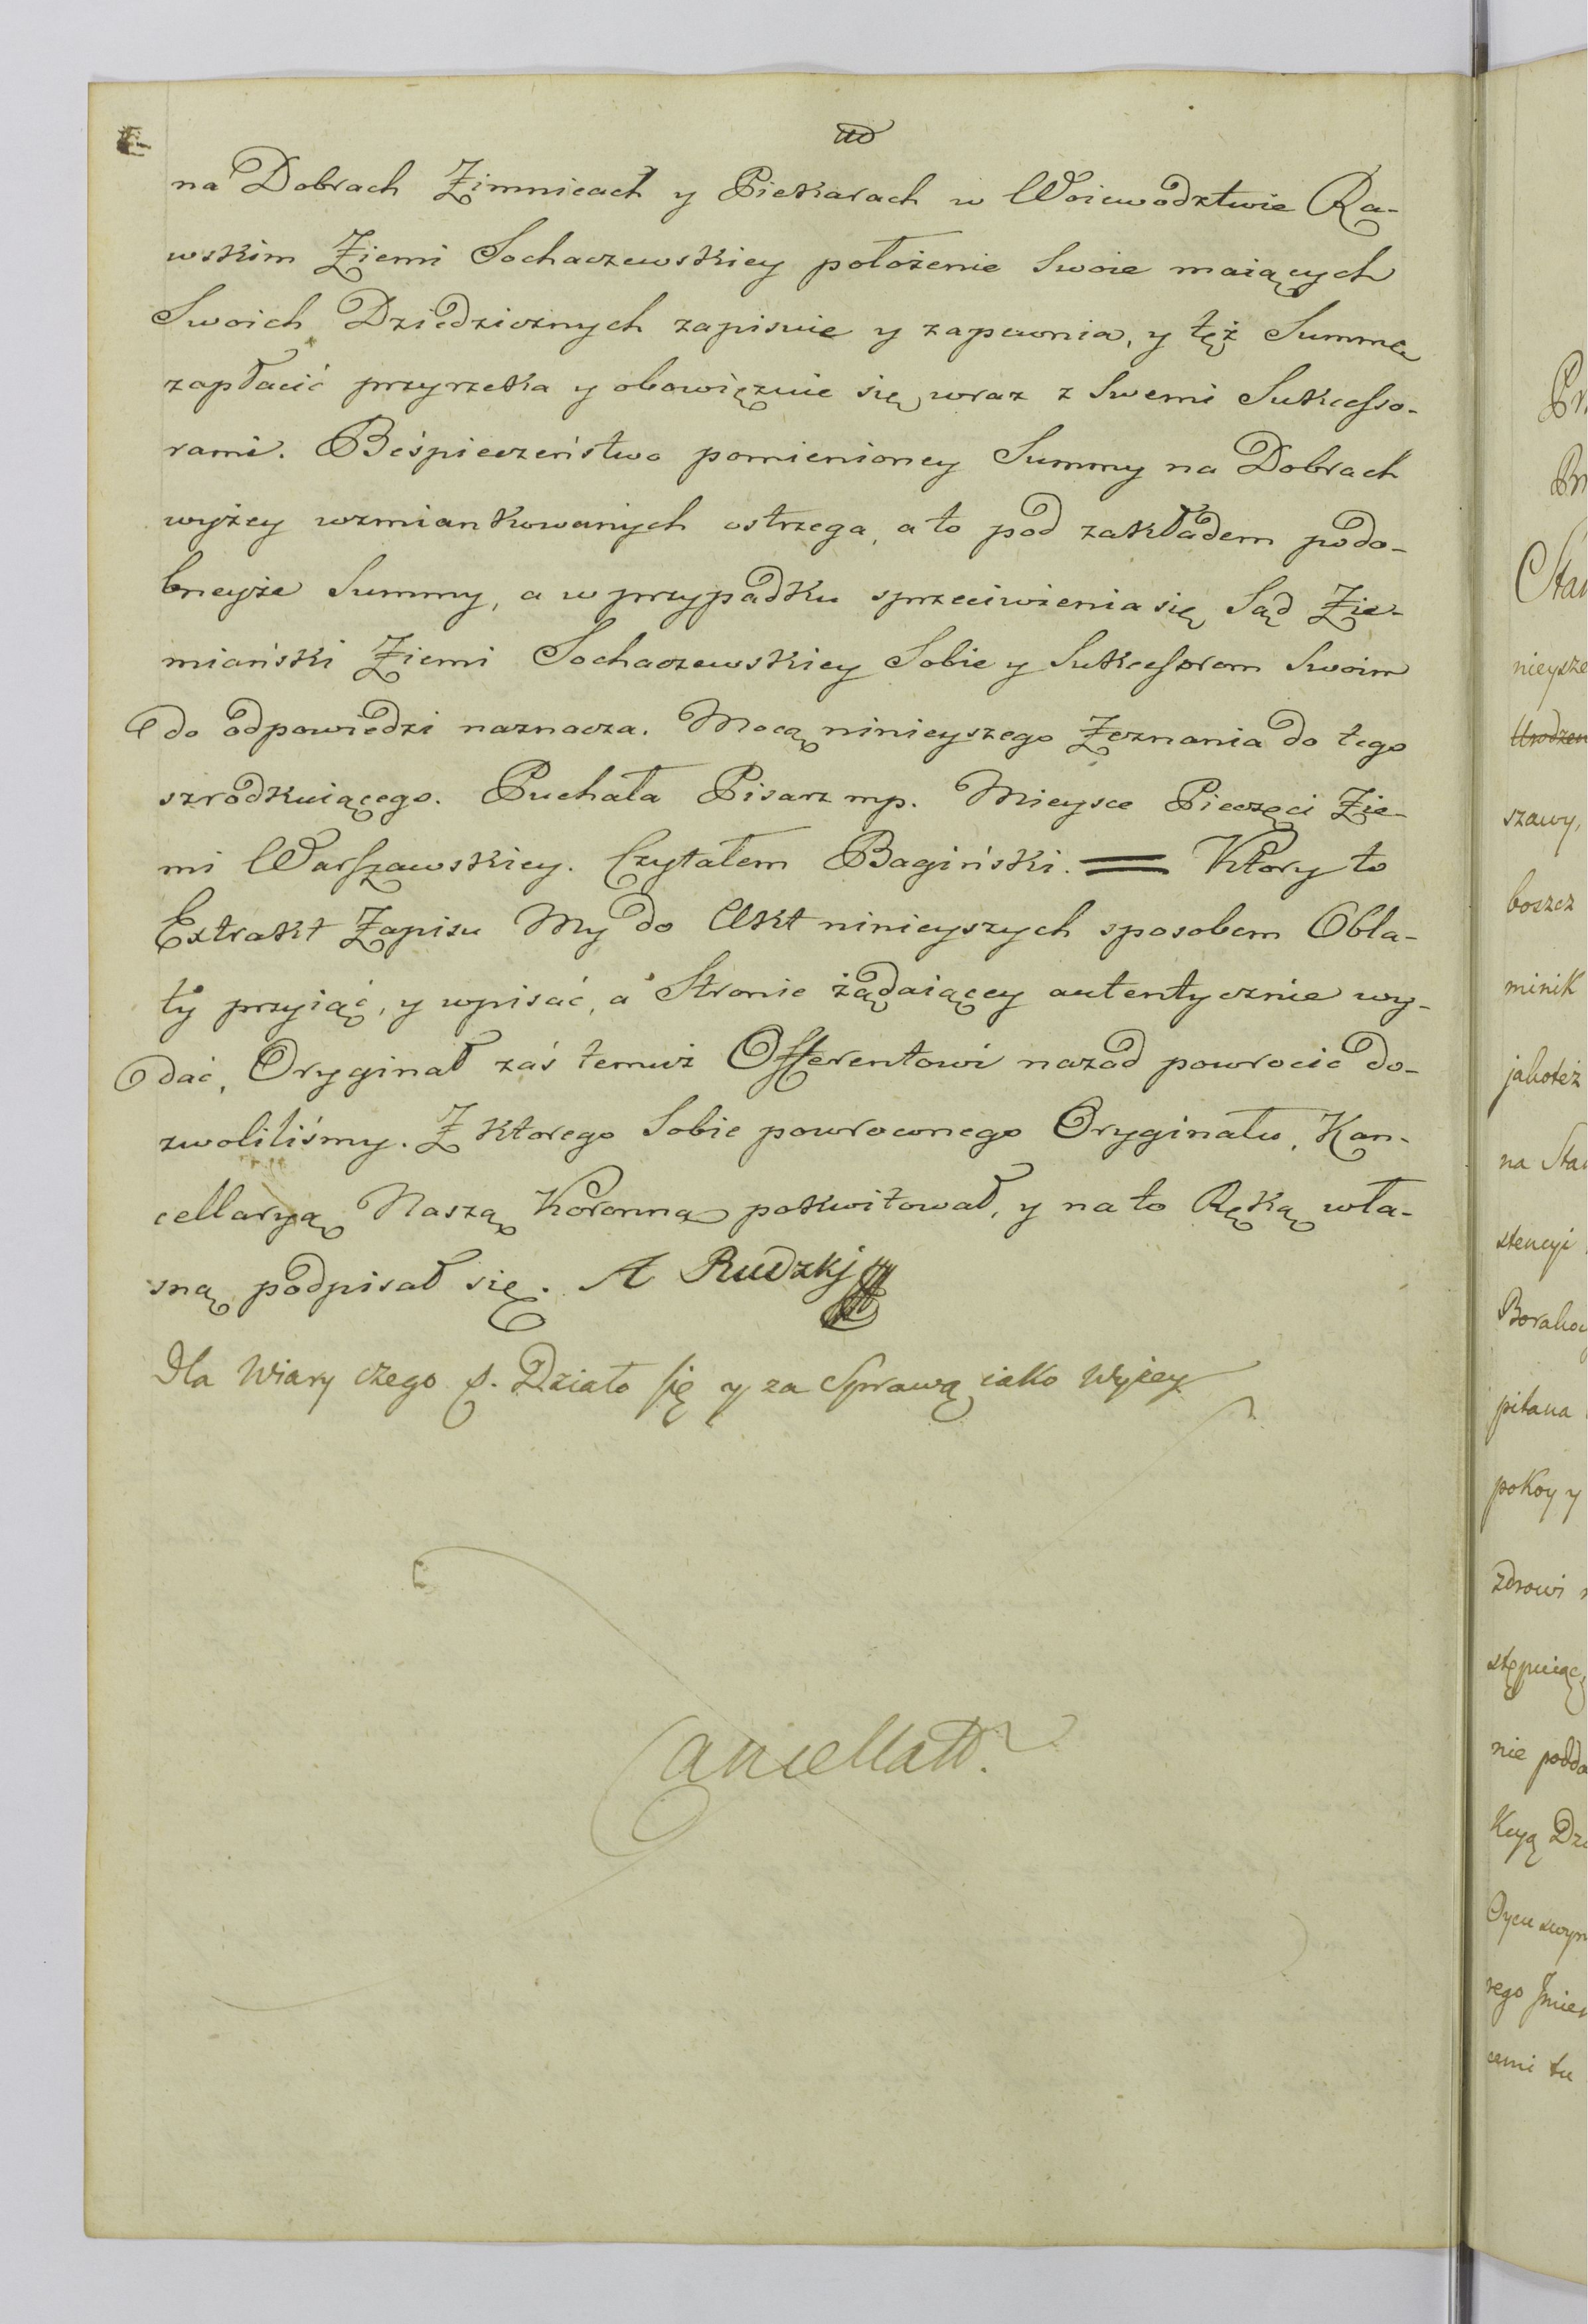 na Dobrach Zimnicach y Piekarach w Woiewodztwie Ra-
wskim Ziemi Sochaczewskiey położenie Swoie maiących
Swoich Dziedzicznych zapisuie y zapewnia, y tęż Summę
zapłacić przyrzeka y obowięzuie się wraz z Swemi Sukcesso-
rami. Beśpieczeństwo pomienioney Summy na Dobrach
wyżey wzmiankowanych ostrzega, a to pod zakładem podo-
bneyże Summy, a w przypadku sprzeciwienia się Sąd Zie-
miański Ziemi Sochaczewskiey Sobie y Sukcessorom Swoim
do odpowiedzi naznacza. Mocą ninieyszego Zeznania do tego
szrodkuiącego. Puchała Pisarz mp. Mieysce Pieczęci Zie-
mi Warszawskiey. Czytałem Bagiński. = Ktory to
Extrakt Zapisu My do Akt ninieyszych sposobem Obla-
ty przyiąć, y wpisać, a Stronie żądaiącey autentycznie wy-
dać, Oryginał zaś temuż Offerentowi nazad powrocić do-
zwoliliśmy. Z ktorego Sobie powroconego Oryginału, Kan-
cellaryą Naszą Koronną pokwitował, y na to Ręką wła-
sną podpisał się. A Rudzkj
Dla Wiary czego &. Działo się y za Sprawą iako Wyżey
Cancellatt.
Pr
Br
Stan
nieysze
Urodzen
szawy,
boszcz
minik
jakoteż
na Sta
stencyi
pitana
pokoy y
zdrowi
stępuiąc
nie podda
Kcyą Dz
Oycu swym
rego Jmie
cemi tu